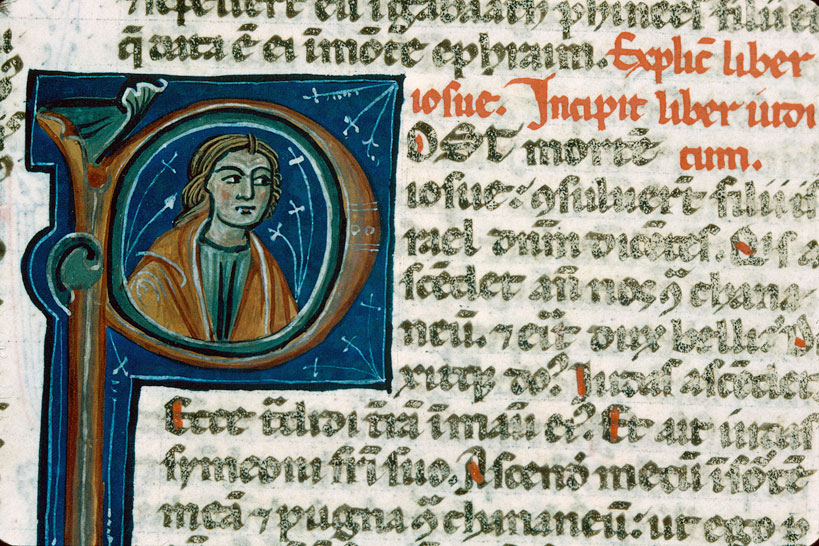 sepelieru̅t eu̅ i̅ gabaath phinees filii ei
q̅ data e̅ ei i̅ mo̅te ephraim. Explic̅ liber
iosue. Incipit liber iudi
cum.
POST morte̅
iosue: ꝯsuluer̅t filii is
rael dn̅m dice̅tes. Q̅is a
sce̅det an̅ nos ꝯ chana
neu̅. ⁊ er̅it dux belli? D
xitq; do̅? Iudas ascendet
Ecce t̅didi t̅ra̅ i̅ manu ei? Et ait iudas
symeoni fr̅i suo. Ascend̅ mecu̅ i̅ sorte̅
mea̅ ⁊ pugna ꝯ chananeu̅: ut ego